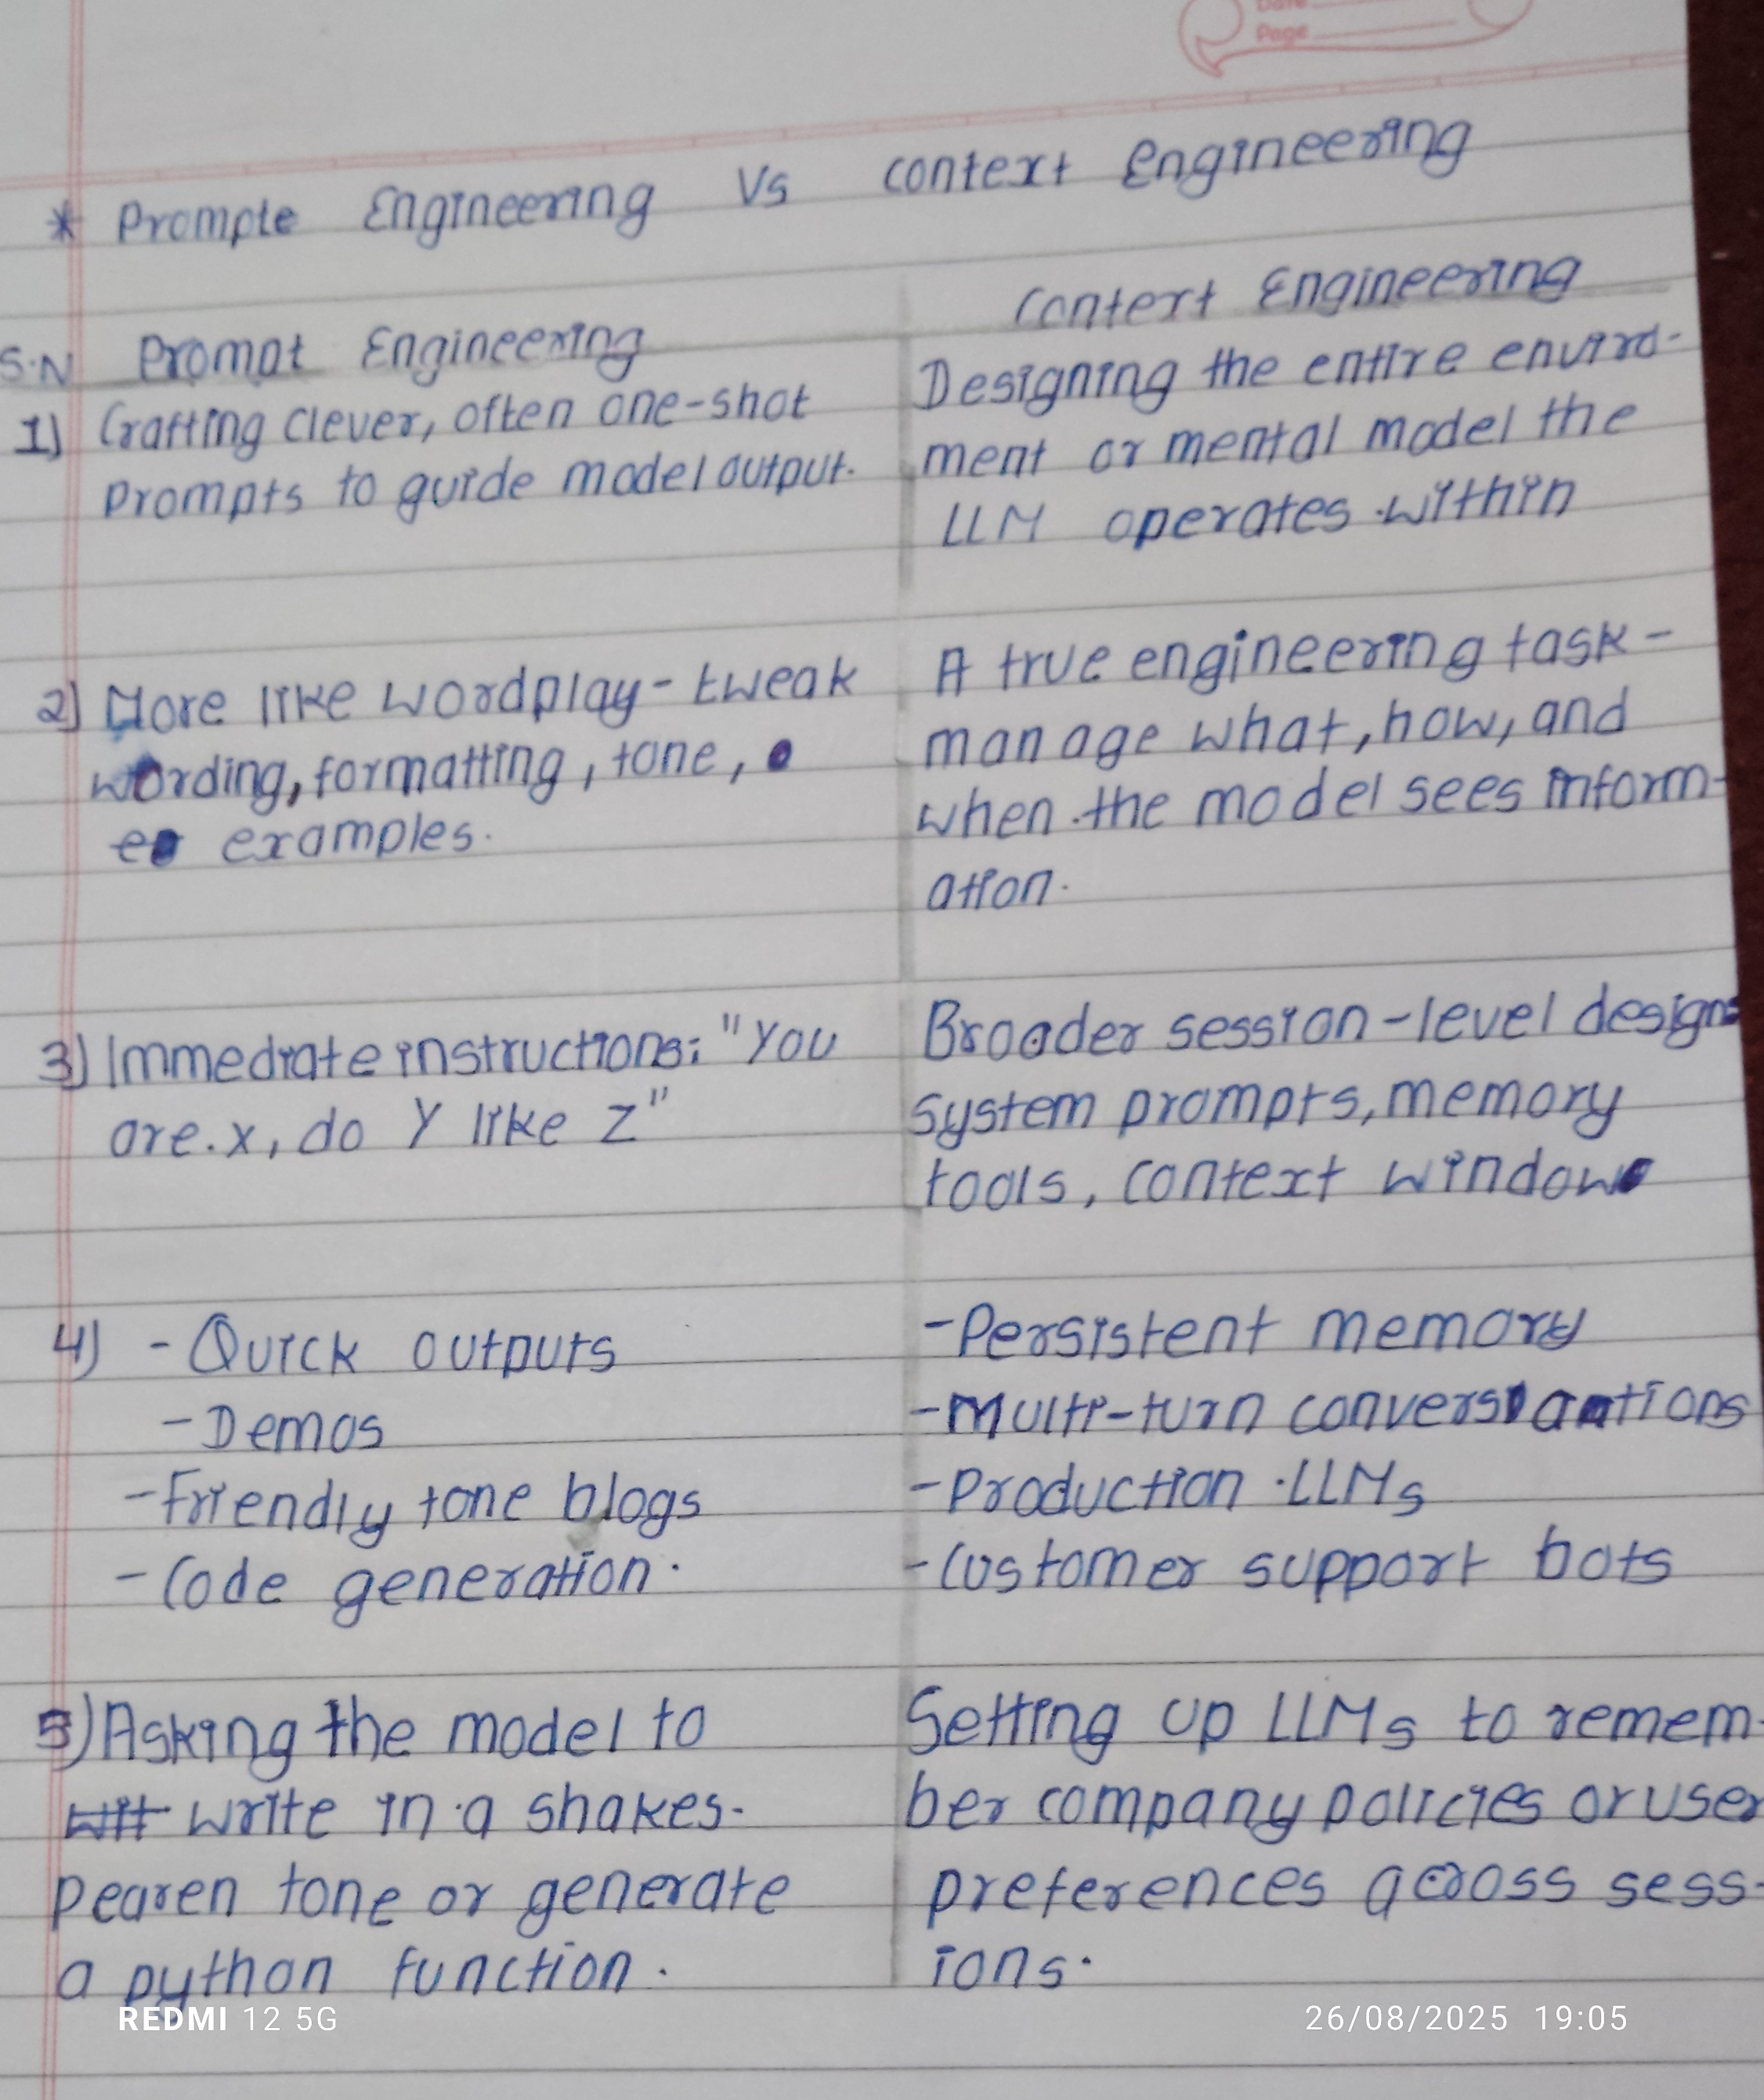 Date
Page
* Prompte Engineering Vs context Engineering
S.N Prompt Engineering
Context Engineering
1) Crafting clever, often one-shot
Prompts to guide model output.
Designing the entire enviro-
ment or mental model the
LLM operates within
2) More like wordplay- tweak
wording, formatting, tone,
examples.
A true engineering task-
manage what, how, and
when the model sees inform-
ation.
3) Immediate instructions: "You
are x, do Y like Z"
Broader session-level designs
System prompts, memory
tools, context window
4) - Quick outputs
- Demos
- Friendly tone blogs
- Code generation.
- Persistent memory
- Multi-turn conversations
- Production LLMs
- Customer support bots
5) Asking the model to
write in a shakes-
pearen tone or generate
a python function.
Setting up LLMs to remem-
ber company policies or user
preferences across sess-
ions.
REDMI 12 5G
26/08/2025 19:05